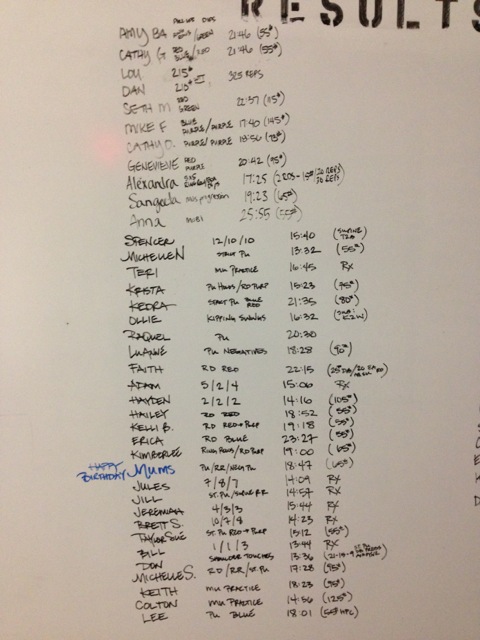 RESULTS
PULLUPS DIPS
AMY BA /GREEN 21:46 (55#)
CATHY G RD BLUE/RED 21:46 (55#)
LOU 215# 325 REPS
DAN 215#
SETH M RED GREEN 22:37 (115#)
MIKE F BLUE PURPLE/PURPLE 17:40 (145#)
CATHY D. PURPLE/PURPLE 18:56 (73#)
GENEVIEVE RED PURPLE 20:42 (95#)
Alexandra 17:25 (2 RDS - 15#/20 REPS 30 REPS)
Sangeeta 19:23 (65#)
Anna 25:55 (55#)
SPENCER 12/10/10 15:40
MICHELLE N STRICT PU 13:32 (55#)
TERI MU PRACTICE 16:45 RX
KRISTA PU HOLDS/RD PURP 15:23 (95#)
KEDRA STRICT PU BLUE RED 21:35 (80#)
OLLIE KIPPING SWINGS 16:32
RAQUEL PU 20:30
LUANNE PU NEGATIVES 18:28 (90#)
FAITH RD RED 22:15 (25# DB/20 EA ARM)
ADAM 5/2/4 15:06 RX
HAYDEN 2/2/2 14:16 (105#)
HAILEY RD RED 18:52 (55#)
KELLI B. RD RED+PURP 19:18 (55#)
ERICA RD BLUE 23:27 (55#)
KIMBERLEE RING ROWS/RD PURP 19:00 (65#)
HAPPY BIRTHDAY MUMS PU/RR/NEG PU 18:47 (65#)
JULES 7/8/7 14:09 RX
JILL ST. PU/SUPINE RR 14:57 RX
JEREMIAH 4/3/3 15:44 RX
BRETT S. 10/7/8 14:23 RX
TAYLOR SUE ST. PU RED+PURP 15:12 (55#)
BILL 1/1/3 13:44 RX
DON SHOULDER TOUCHES 13:36 (21-15-9 ST. PU)
MICHELLE S. RD/RR/ST. PU 17:28 (95#)
KEITH MU PRACTICE 18:23 (95#)
COLTON MU PRACTICE 14:56 (125#)
LEE PU BLUE 18:01